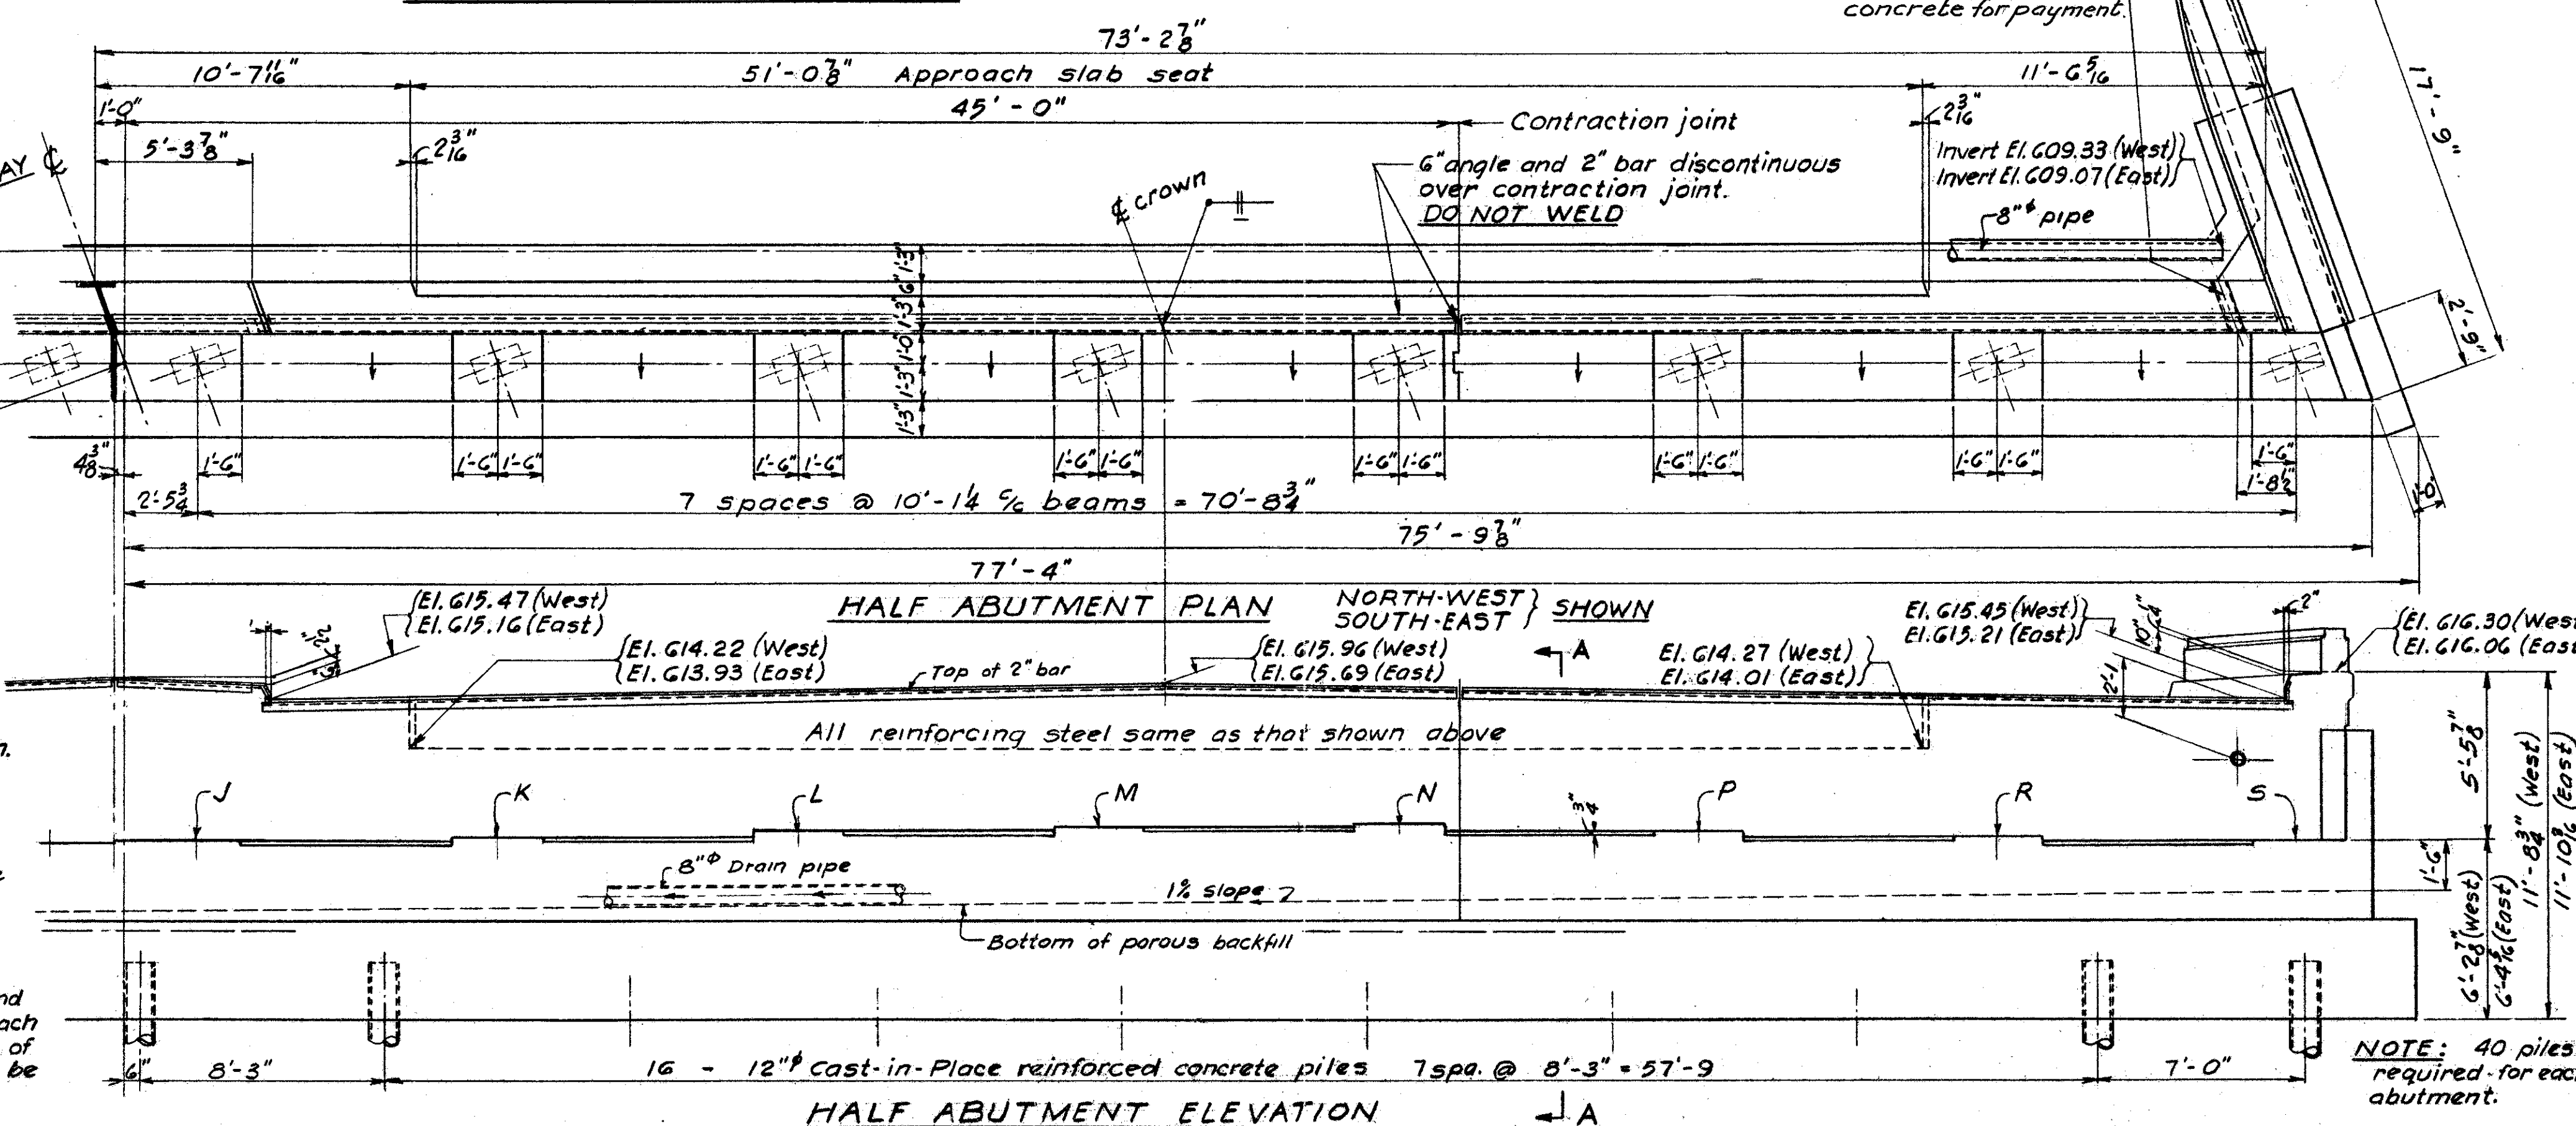 concrete for payment.
73'-2 7/8"
10'-7 11/16"
51'-0 7/8" Approach slab seat
11'-6 5/16
17'-9"
1'-0"
45'-0"
Contraction joint
2 3/16"
2 3/16"
5'-3 7/8"
AY ℄
6" angle and 2" bar discontinuous
over contraction joint.
DO NOT WELD
Invert El. 609.33 (West)
Invert El. 609.07 (East)
℄ crown
8"φ pipe
1'-3"
6"
1'-3"
1'-0"
1'-3"
1'-3"
2'-6"
4 3/8"
1'-6"
1'-6" 1'-6"
1'-6" 1'-6"
1'-6" 1'-6"
1'-6" 1'-6"
1'-6" 1'-6"
1'-6" 1'-6"
1'-6"
1'-8 1/2"
1'-0"
2'-5 3/4"
7 spaces @ 10'-1 1/4 c/c beams = 70'-8 3/4"
75'-9 7/8"
77'-4"
HALF ABUTMENT PLAN
NORTH-WEST
SOUTH-EAST
SHOWN
El. 615.47 (West)
El. 615.16 (East)
El. 614.22 (West)
El. 613.93 (East)
Top of 2" bar
El. 615.96 (West)
El. 615.69 (East)
A
El. 614.27 (West)
El. 614.01 (East)
El. 615.45 (West)
El. 615.21 (East)
10"
2"
El. 616.30 (West
El. 616.06 (East
2'-1
All reinforcing steel same as that shown above
J
K
L
M
N
P
R
S
3/4"
5'-5 7/8"
11'-8 3/4" (West)
(East)
8"φ Drain pipe
1% slope
Bottom of porous backfill
1'-6"
6'-2 7/8" (West)
(East)
nd
ach
of
be
6"
8'-3"
16 - 12"φ Cast-in-Place reinforced concrete piles 7 spa. @ 8'-3" = 57'-9
7'-0"
NOTE: 40 piles
required for eac
abutment.
HALF ABUTMENT ELEVATION
A